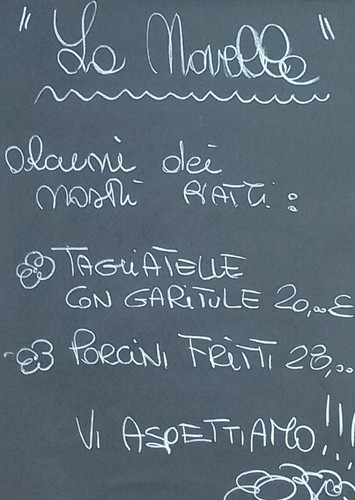 "La Novelle"
alcuni dei
nostri PIATTI:
TAGLIATELLE
CON GARITULE 20,..€
PORCINI FRITTI 28,..
VI ASPETTIAMO!!!